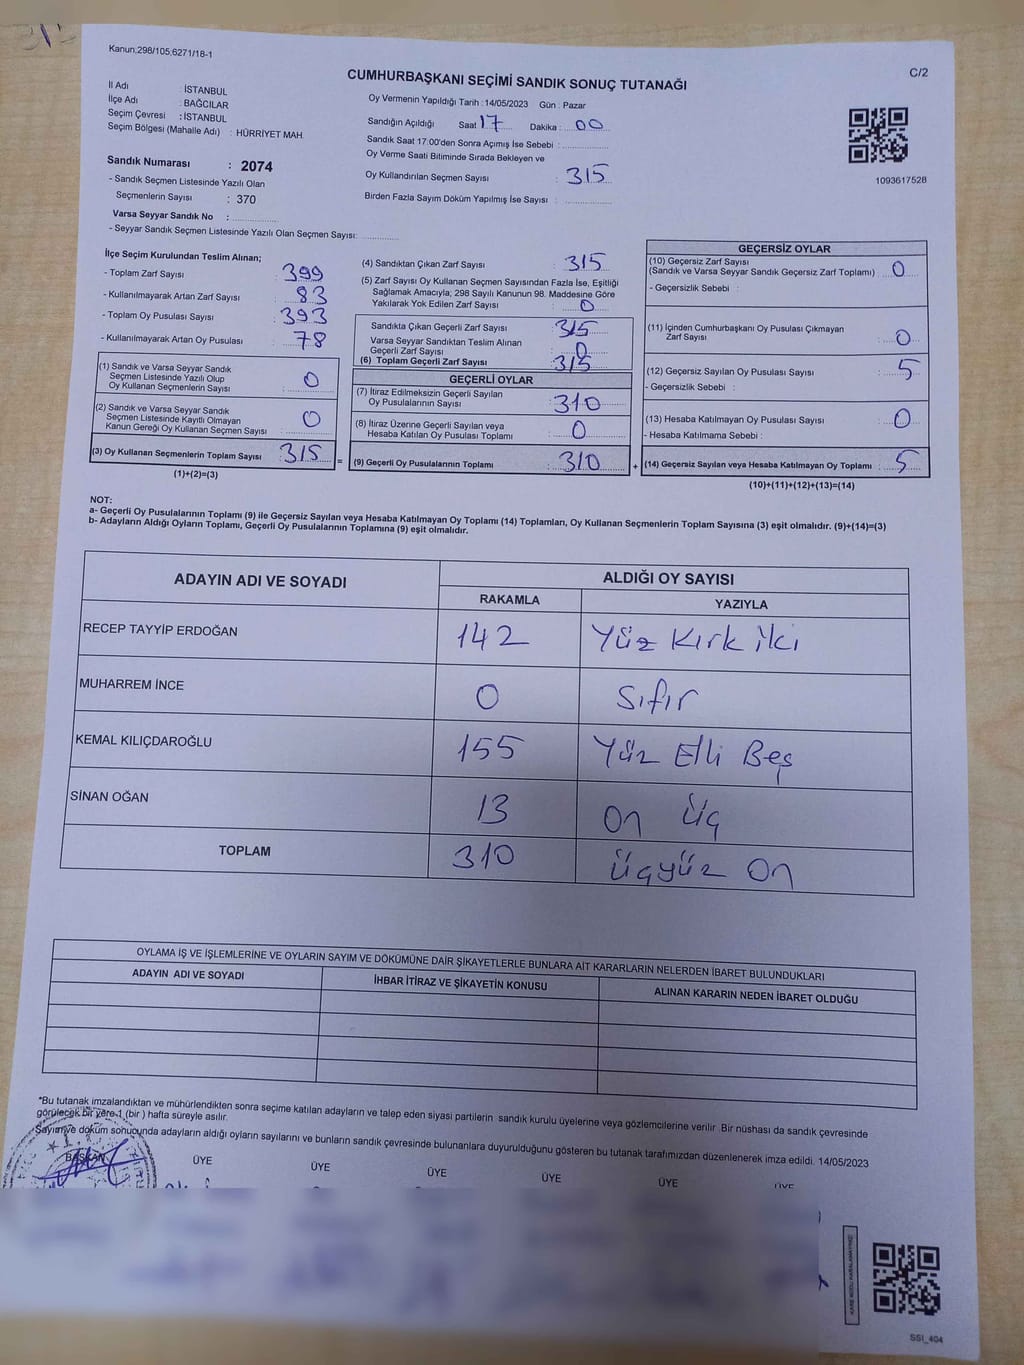 Kanun;298/105,6271/18-1
C/2
CUMHURBAŞKANI SEÇİMİ SANDIK SONUÇ TUTANAĞI
İl Adı : İSTANBUL
İlçe Adı : BAĞCILAR
Seçim Çevresi : İSTANBUL
Seçim Bölgesi (Mahalle Adı) : HÜRRİYET MAH.
Sandık Numarası : 2074
- Sandık Seçmen Listesinde Yazılı Olan
Seçmenlerin Sayısı : 370
Varsa Seyyar Sandık No :
- Seyyar Sandık Seçmen Listesinde Yazılı Olan Seçmen Sayısı:
Oy Vermenin Yapıldığı Tarih : 14/05/2023 Gün : Pazar
Sandığın Açıldığı Saat 17 Dakika : 00
Sandık Saat 17:00'den Sonra Açımış İse Sebebi :
Oy Verme Saati Bitiminde Sırada Bekleyen ve
Oy Kullandırılan Seçmen Sayısı : 315
Birden Fazla Sayım Döküm Yapılmış İse Sayısı :
1093617528
İlçe Seçim Kurulundan Teslim Alınan;
- Toplam Zarf Sayısı : 399
- Kullanılmayarak Artan Zarf Sayısı : 83
- Toplam Oy Pusulası Sayısı : 393
- Kullanılmayarak Artan Oy Pusulası : 78
(1) Sandık ve Varsa Seyyar Sandık
Seçmen Listesinde Yazılı Olup
Oy Kullanan Seçmenlerin Sayısı : 0
(2) Sandık ve Varsa Seyyar Sandık
Seçmen Listesinde Kayıtlı Olmayan
Kanun Gereği Oy Kullanan Seçmen Sayısı : 0
(3) Oy Kullanan Seçmenlerin Toplam Sayısı : 315
(1)+(2)=(3)
=
(4) Sandıktan Çıkan Zarf Sayısı : 315
(5) Zarf Sayısı Oy Kullanan Seçmen Sayısından Fazla İse, Eşitliği
Sağlamak Amacıyla; 298 Sayılı Kanunun 98. Maddesine Göre
Yakılarak Yok Edilen Zarf Sayısı : 0
Sandıkta Çıkan Geçerli Zarf Sayısı : 315
Varsa Seyyar Sandıktan Teslim Alınan
Geçerli Zarf Sayısı : 0
(6) Toplam Geçerli Zarf Sayısı : 315
GEÇERLİ OYLAR
(7) İtiraz Edilmeksizin Geçerli Sayılan
Oy Pusulalarının Sayısı : 310
(8) İtiraz Üzerine Geçerli Sayılan veya
Hesaba Katılan Oy Pusulası Toplamı : 0
(9) Geçerli Oy Pusulalarının Toplamı : 310
+
GEÇERSİZ OYLAR
(10) Geçersiz Zarf Sayısı
(Sandık ve Varsa Seyyar Sandık Geçersiz Zarf Toplamı) : 0
- Geçersizlik Sebebi :
(11) İçinden Cumhurbaşkanı Oy Pusulası Çıkmayan
Zarf Sayısı : 0
(12) Geçersiz Sayılan Oy Pusulası Sayısı : 5
- Geçersizlik Sebebi :
(13) Hesaba Katılmayan Oy Pusulası Sayısı : 0
- Hesaba Katılmama Sebebi :
(14) Geçersiz Sayılan veya Hesaba Katılmayan Oy Toplamı : 5
(10)+(11)+(12)+(13)=(14)
NOT:
a- Geçerli Oy Pusulalarının Toplamı (9) ile Geçersiz Sayılan veya Hesaba Katılmayan Oy Toplamı (14) Toplamları, Oy Kullanan Seçmenlerin Toplam Sayısına (3) eşit olmalıdır. (9)+(14)=(3)
b- Adayların Aldığı Oyların Toplamı, Geçerli Oy Pusulalarının Toplamına (9) eşit olmalıdır.
ADAYIN ADI VE SOYADI ALDIĞI OY SAYISI
RAKAMLA YAZIYLA
RECEP TAYYİP ERDOĞAN 142 Yüz Kırk iki
MUHARREM İNCE 0 Sıfır
KEMAL KILIÇDAROĞLU 155 Yüz Elli Beş
SİNAN OĞAN 13 On üç
TOPLAM 310 üçyüz On
OYLAMA İŞ VE İŞLEMLERİNE VE OYLARIN SAYIM VE DÖKÜMÜNE DAİR ŞİKAYETLERLE BUNLARA AİT KARARLARIN NELERDEN İBARET BULUNDUKLARI
ADAYIN ADI VE SOYADI İHBAR İTİRAZ VE ŞİKAYETİN KONUSU ALINAN KARARIN NEDEN İBARET OLDUĞU
*Bu tutanak imzalandıktan ve mühürlendikten sonra seçime katılan adayların ve talep eden siyasi partilerin sandık kurulu üyelerine veya gözlemcilerine verilir. Bir nüshası da sandık çevresinde
görülecek bir yere 1 (bir) hafta süreyle asılır.
Sayım ve döküm sonucunda adayların aldığı oyların sayılarını ve bunların sandık çevresinde bulunanlara duyurulduğunu gösteren bu tutanak tarafımızdan düzenlenerek imza edildi. 14/05/2023
BAŞKAN ÜYE ÜYE ÜYE ÜYE ÜYE ÜYE
SSI_404